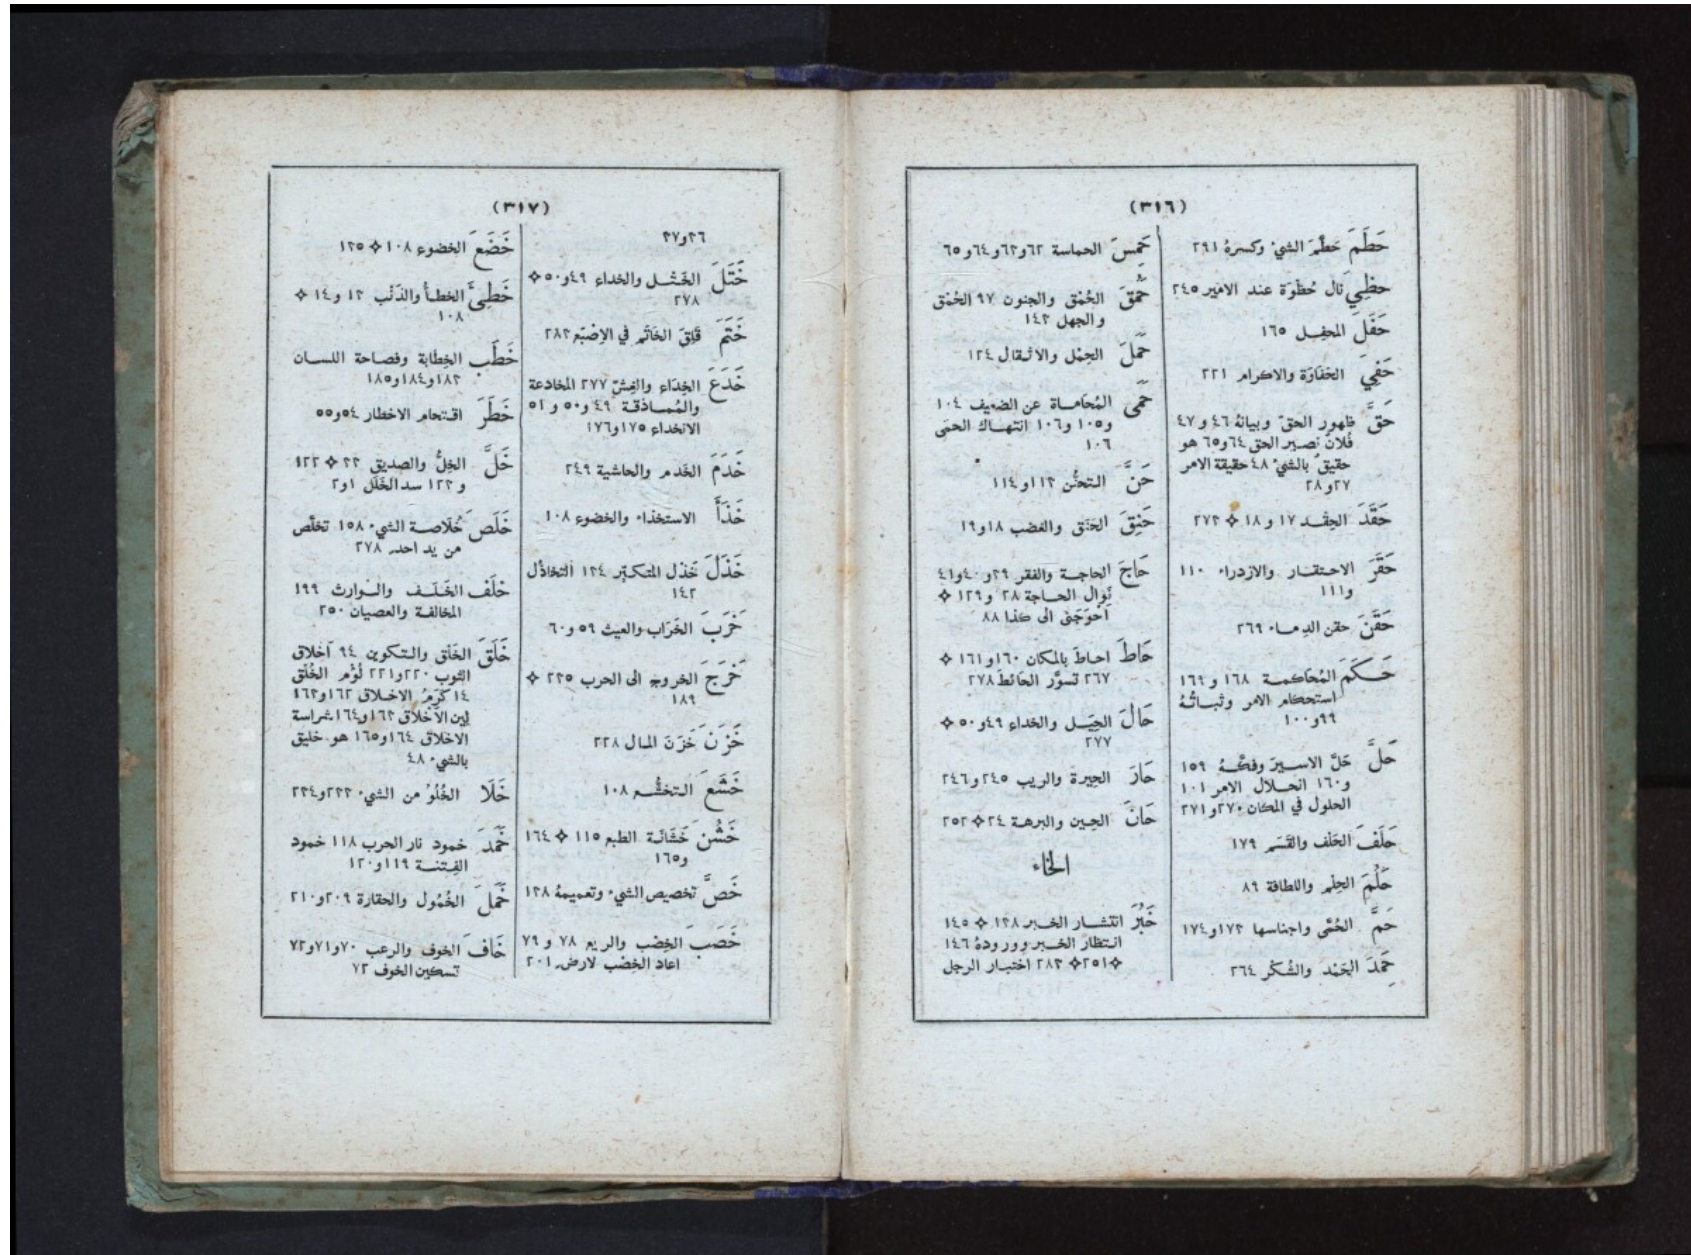 (٣١٦)
حَطَمَ حَطْمَ الشيْ وكسرهُ ٢٩١
حظِيَ نال حُظْوَة عند الامير ٢٤٥
حَفَلَ المحفِل ١٦٥
حَفِيَ الحَفَاوَة والاكرام ٢٢١
حَقَّ ظهور الحقّ وبيانهُ ٤٦ و٤٧
فُلانٌ نصير الحق ٦٤و٦٥ هو
حقيقٌ بالشيْ ٤٨ حقيقة الامر
٢٧و٢٨
حَقَدَ الحِقْد ١٧ و١٨ ✧ ٢٧٣
حَقَرَ الاحتقار والازدراء ١١٠
و١١١
حَقَنَ حقن الدِماء ٢٦٩
حَكَمَ المُحاكمة ١٦٨ و١٦٩
استحكام الامر وثَباتُهُ
٩٩و١٠٠
حَلَّ حَلّ الاسير وفكّهُ ١٥٩
و١٦٠ انحلال الامر ١٠١
الحلول في المكان ٢٧٠و٢٧١
حَلَفَ الحَلْف والقَسَم ١٧٩
حَلُمَ الحِلْم واللطافة ٨٩
حَمَّ الحُمَّى واجناسها ١٧٣و١٧٤
حَمِدَ الحَمْد والشُكْر ٢٦٤
حَمِسَ الحماسة ٦٢و٦٣و٦٤و٦٥
حَمُقَ الحُمْق والجنون ٩٧ الحُمْق
والجهل ١٤٣
حَمَلَ الحِمْل والاثقال ١٢٤
حَمَى المُحَاماة عن الضعيف ١٠٤
و١٠٥ و١٠٦ انتهاك الحِمَى
١٠٦
حَنَّ التحنُّن ١١٣و١١٤
حَنِقَ الحَنَق والغضب ١٨و١٩
حَاجَ الحاجة والفقر ٣٩و٤٠و٤١
نَوال الحاجة ٢٨ و١٢٩ ✧
اَحْوَجَني الى كذا ٨٨
حَاطَ احاطَ بالمكان ١٦٠و١٦١ ✧
٢٦٧ تسوُّر الحائط ٢٧٨
حَالَ الحِيَل والخداع ٤٩و٥٠ ✧
٢٧٧
حَارَ الحِيرة والريب ٢٤٥و٢٤٦
حَانَ الحِين والبرهة ٢٤✧٢٥٢
الخاء
خَبُرَ انتشار الخبر ١٣٨ ✧ ١٤٥
انتظار الخبر وورودهُ ١٤٦
✧٢٥١✧ ٢٨٣ اختبار الرجل
(٣١٧)
٣٦و٣٧
خَتَلَ الخَتْل والخداع ٤٩و٥٠✧
٢٧٨
خَتَمَ قَلِقَ الخَاتَم في الاِصْبَع ٢٨٢
خَدَعَ الخِدَاع والغِشّ ٢٧٧ المخادعة
والمُماذقة ٤٩ و٥٠ و٥١
الانخداع ١٧٥و١٧٦
خَدَمَ الخَدم والحاشية ٢٤٩
خَذَأَ الاستخذاء والخضوع ١٠٨
خَذَلَ خَذْل المتكبّر ١٢٤ التخاذُل
١٤٢
خَرَبَ الخَرَاب والعيث ٥٩ و٦٠
خَرَجَ الخروج الى الحرب ٢٣٥ ✧
١٨٩
خَزَنَ خَزَنَ المال ٢٢٨
خَشَعَ التخشُّع ١٠٨
خَشُنَ خَشَانَة الطبع ١١٥ ✧ ١٦٤
و١٦٥
خَصَّ تخصيص الشيْ وتعميمهُ ١٢٨
خَصَبَ الخِصْب والريع ٧٨ و٧٩
اعاد الخِصْب لارض ٢٠١
خَضَعَ الخضوع ١٠٨ ✧ ١٢٥
خَطِئَ الخطأ والذَنْب ١٣ و١٤ ✧
١٠٨
خَطَب الخِطَابة وفصاحة اللسان
١٨٣و١٨٤و١٨٥
خَطَرَ اقتحام الاخطار ٥٤و٥٥
خَلَّ الخِلّ والصديق ٢٣ ✧ ١٢٢
و١٢٣ سد الخَلَل ١و٢
خَلَصَ خُلَاصة الشيْ ١٥٨ تخلّص
من يد احد ٢٧٨
خَلَف الخَلَف والوارث ١٩٩
المخالفة والعصيان ٢٥٠
خَلَقَ الخَلْق والتكوين ٩٤ اَخلاق
الثوب ٢٢٠و٢٢١ لُؤْم الخُلْق
١٤ كَرَمُ الاخلاق ١٦٢و١٦٣
لِين الاَخلاق ١٦٣و١٦٤ شراسة
الاخلاق ١٦٤و١٦٥ هو خليق
بالشيْ ٤٨
خَلَا الخُلُوّ من الشيْ ٢٣٣و٢٣٤
خَمَدَ خمود نار الحرب ١١٨ خمود
الفِتنة ١١٩و١٢٠
خَمَلَ الخُمُول والحقارة ٢٠٩و٢١٠
خَافَ الخوف والرعب ٧٠و٧١و٧٢
تسكين الخوف ٧٢